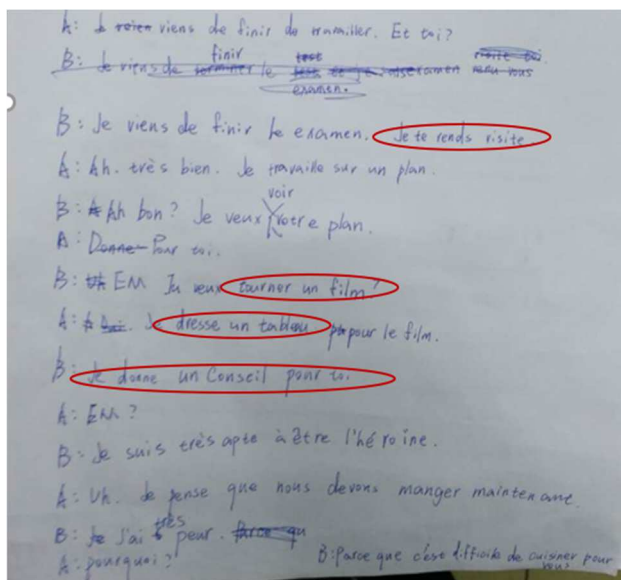 A: Je viens de finir de travailler. Et toi?
B: Je viens de finir le examen.
B: Je viens de finir le examen. Je te rends visite
A: Ah. très bien. Je travaille sur un plan.
B: Ah bon? Je veux voir votre plan.
A: Donne Pour toi.
B: EM Tu veux tourner un film?
A: Je dresse un tableau pour le film.
B: Je donne un Conseil pour toi.
A: EM?
B: Je suis très apte à être l'héroine.
A: Uh. Je pense que nous devons manger maintenant.
B: J'ai très peur. Parce qu
A: pourquoi? B: Parce que c'est difficile de cuisner pour vous